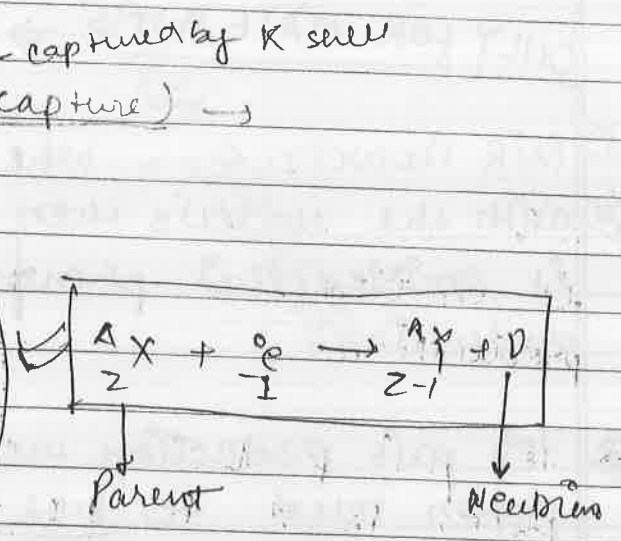 captured by K shell
capture) →
A X + 0 e → A Y + ν
Z -1 Z-1
Parent Neutrino